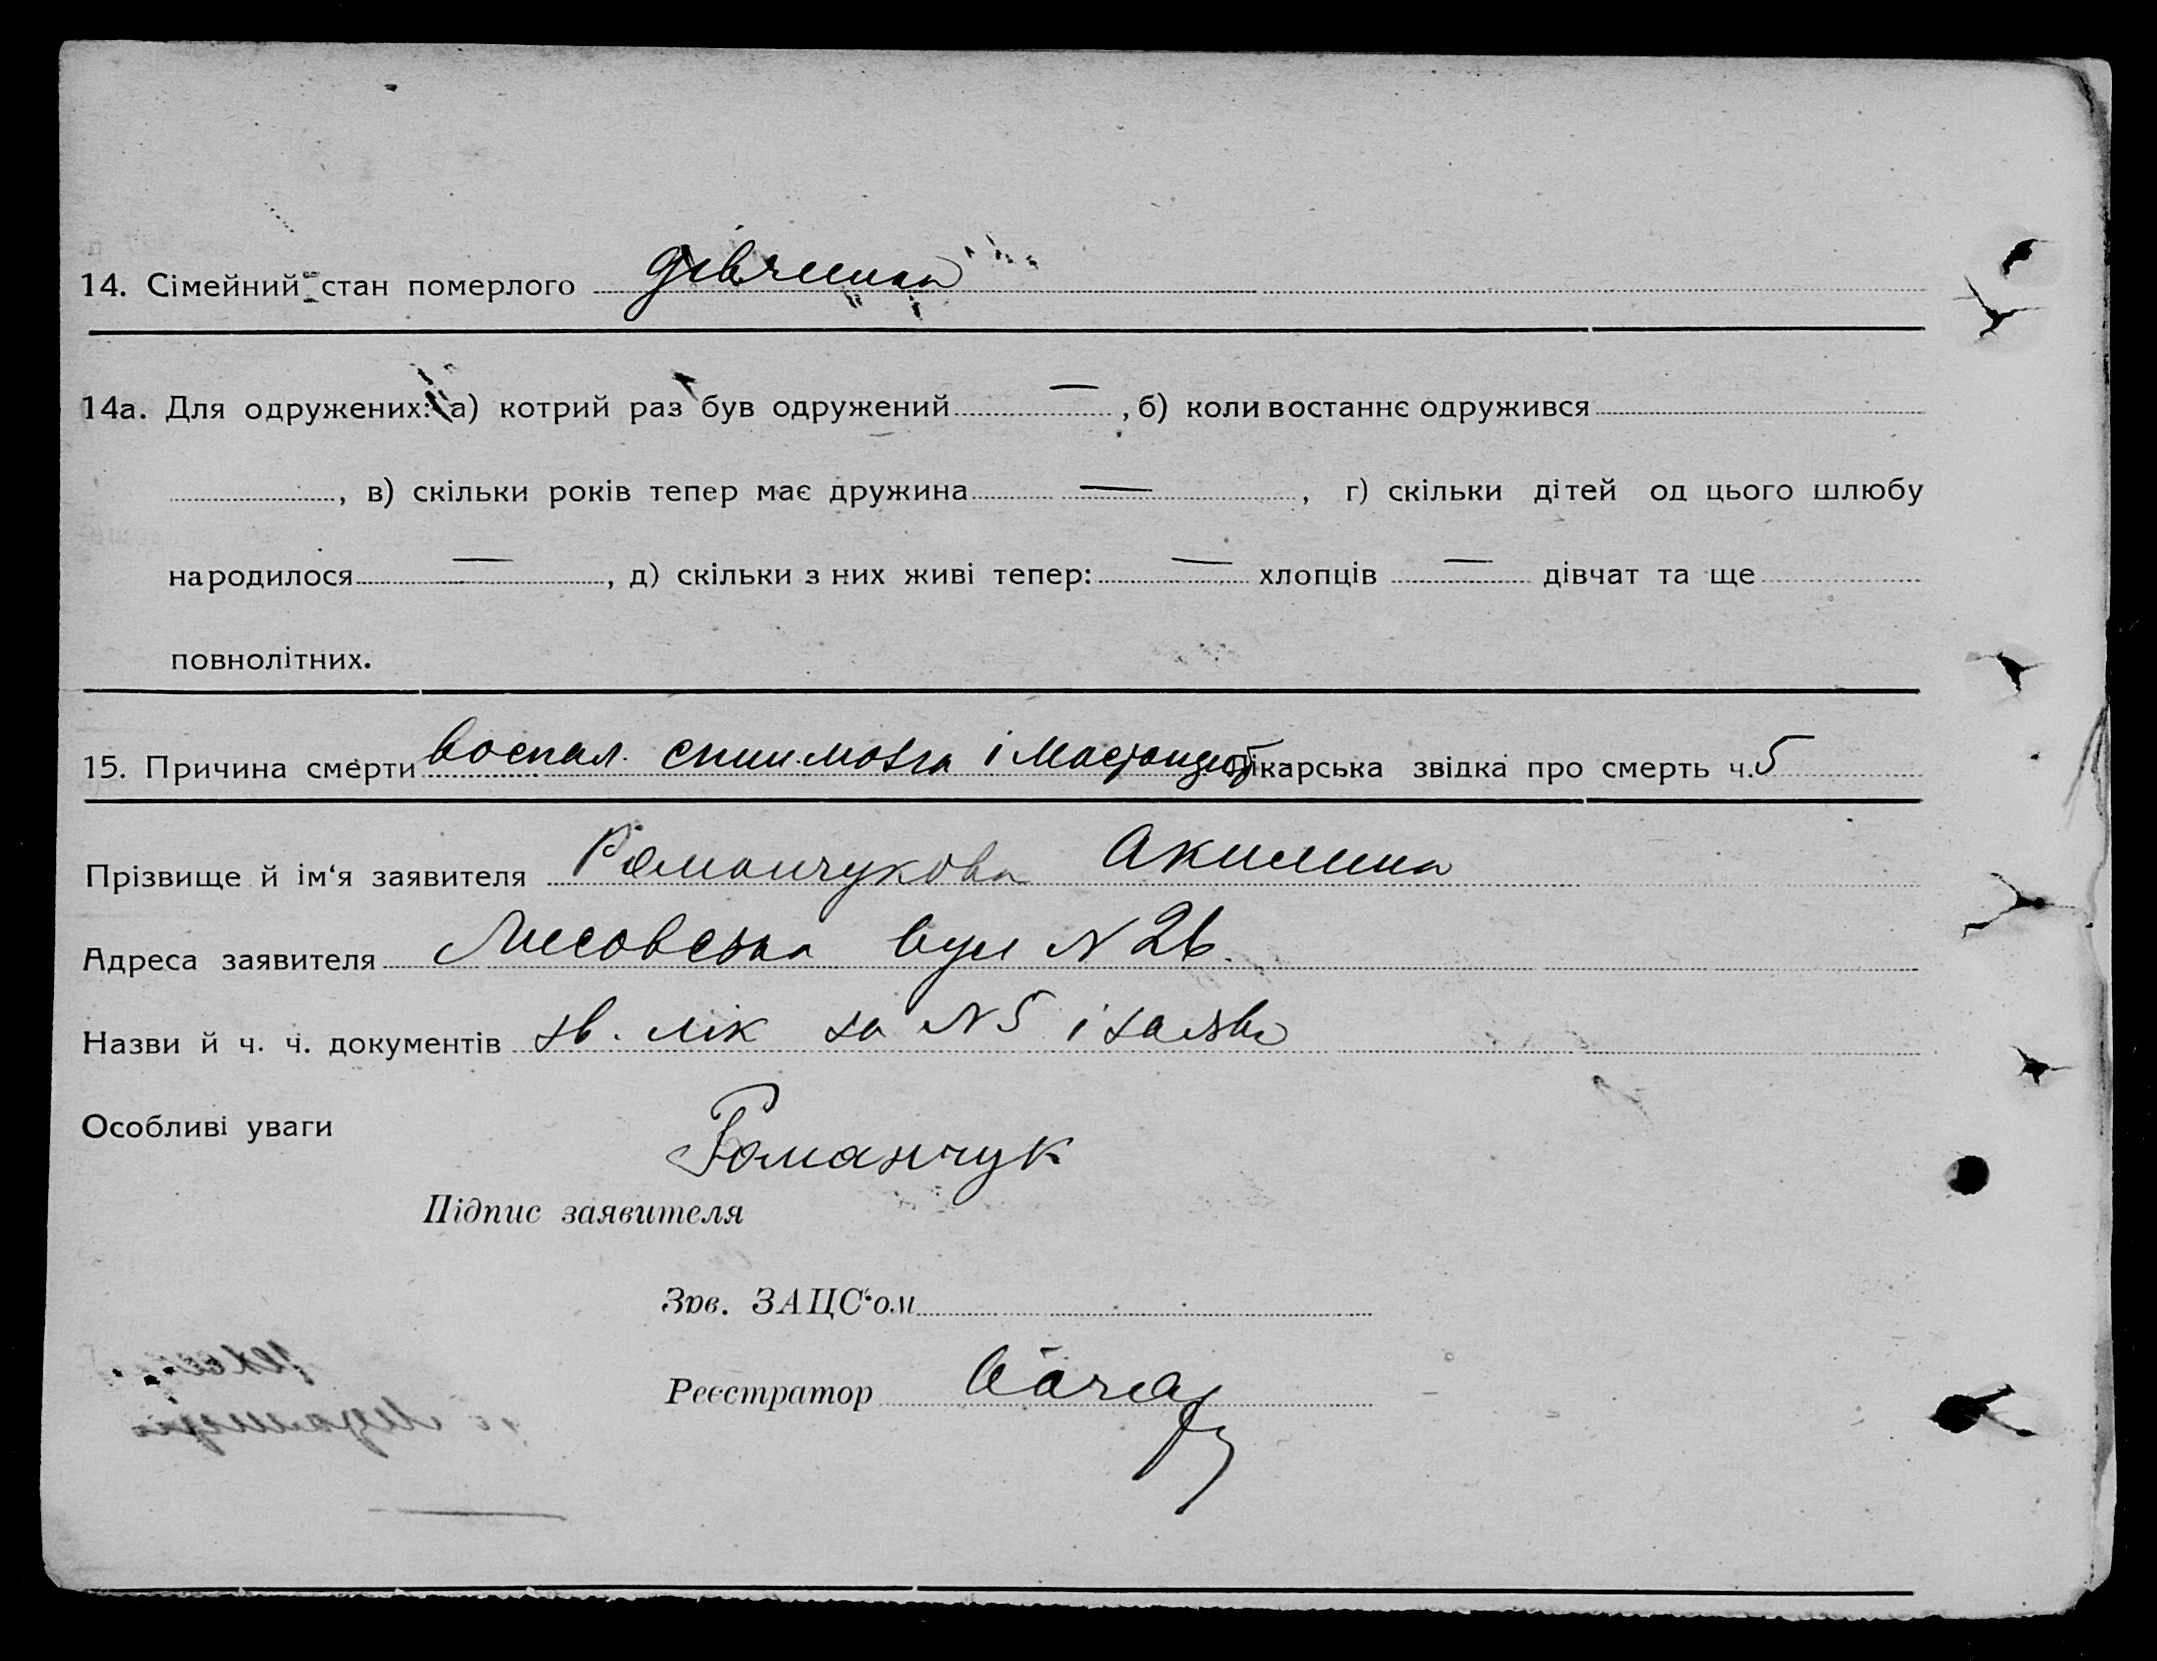 14. Сімейний стан померлого дівчинка
14а. Для одружених: а) котрий раз був одружений — , б) коли востаннє одружився
, в) скільки років тепер має дружина — , г) скільки дітей од цього шлюбу
народилося — , д) скільки з них живі тепер: — хлопців — дівчат та ще
повнолітних.
15. Причина смерти воспал. спин. мозга і Лікарська звідка про смерть ч. 5
Прізвище й ім‘я заявителя Романчукова Акилина
Адреса заявителя Лисовська вул N 26.
Назви й ч. ч. документів зв. лік за N 5 і заява
Особливі уваги
Романчук
Підпис заявителя
Зав. ЗАЦС‘ом
Реєстратор